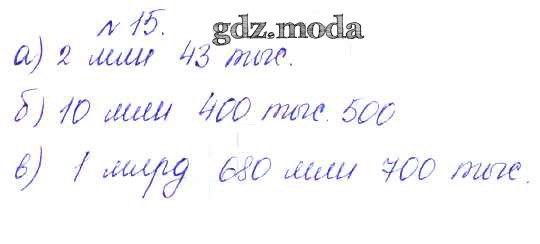 № 15.
gdz.moda
а) 2 млн 43 тыс.
б) 10 млн 400 тыс. 500
в) 1 млрд 680 млн 700 тыс.